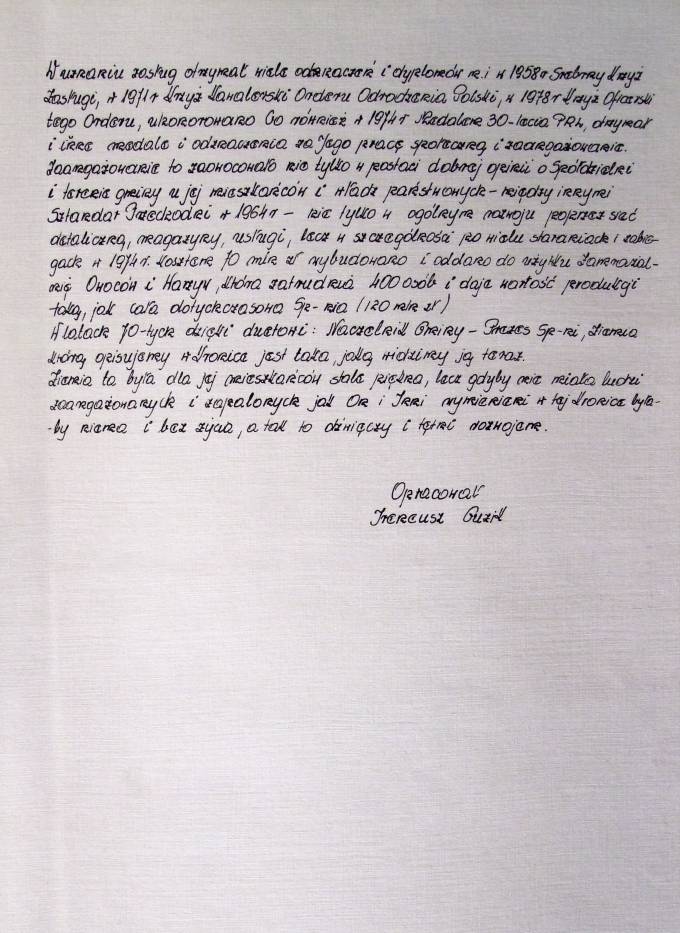 W uznaniu zasług otrzymał wiele odznaczeń i dyplomów m.i w 1958r Srebrny Krzyż
Zasługi, w 1971r Krzyż Kawalerski Orderu Odrodzenia Polski, w 1978r Krzyż Oficerski
tego Orderu, uhonorowano Go również w 1974r Medalem 30-lecia PRL, otrzymał
i inne medale i odznaczenia za Jego pracę społeczną i zaangażowanie.
Zaangażowanie to zaowocowało nie tylko w postaci dobrej opinii o Spółdzielni
i terenie gminy u jej mieszkańców i władz państwowych - między innymi
Sztandar Przechodni w 1964r - nie tylko w ogólnym rozwoju poprzez sieć
detaliczną, magazyny, usługi, lecz w szczególności po wielu staraniach i zabie-
gach w 1974r. kosztem 70 mln zł wybudowano i oddano do użytku Zamrażal-
nię Owoców i Warzyw, która zatrudnia 400 osób i daje wartość produkcji
taką, jak cała dotychczasowa Sp-nia (120 mln zł)
W latach 70-tych dzięki duetowi: Naczelnik Gminy - Prezes Sp-ni, ziemia
którą opisujemy w kronice jest taka, jaką widzimy ją teraz.
Ziemia ta była dla jej mieszkańców stale piękna, lecz gdyby nie miała ludzi
zaangażowanych i zapalonych jak On i Inni wymienieni w tej kronice była-
-by niema i bez życia, a tak to dźwięczy i tętni rozwojem.
Opracował
Ireneusz Guzik